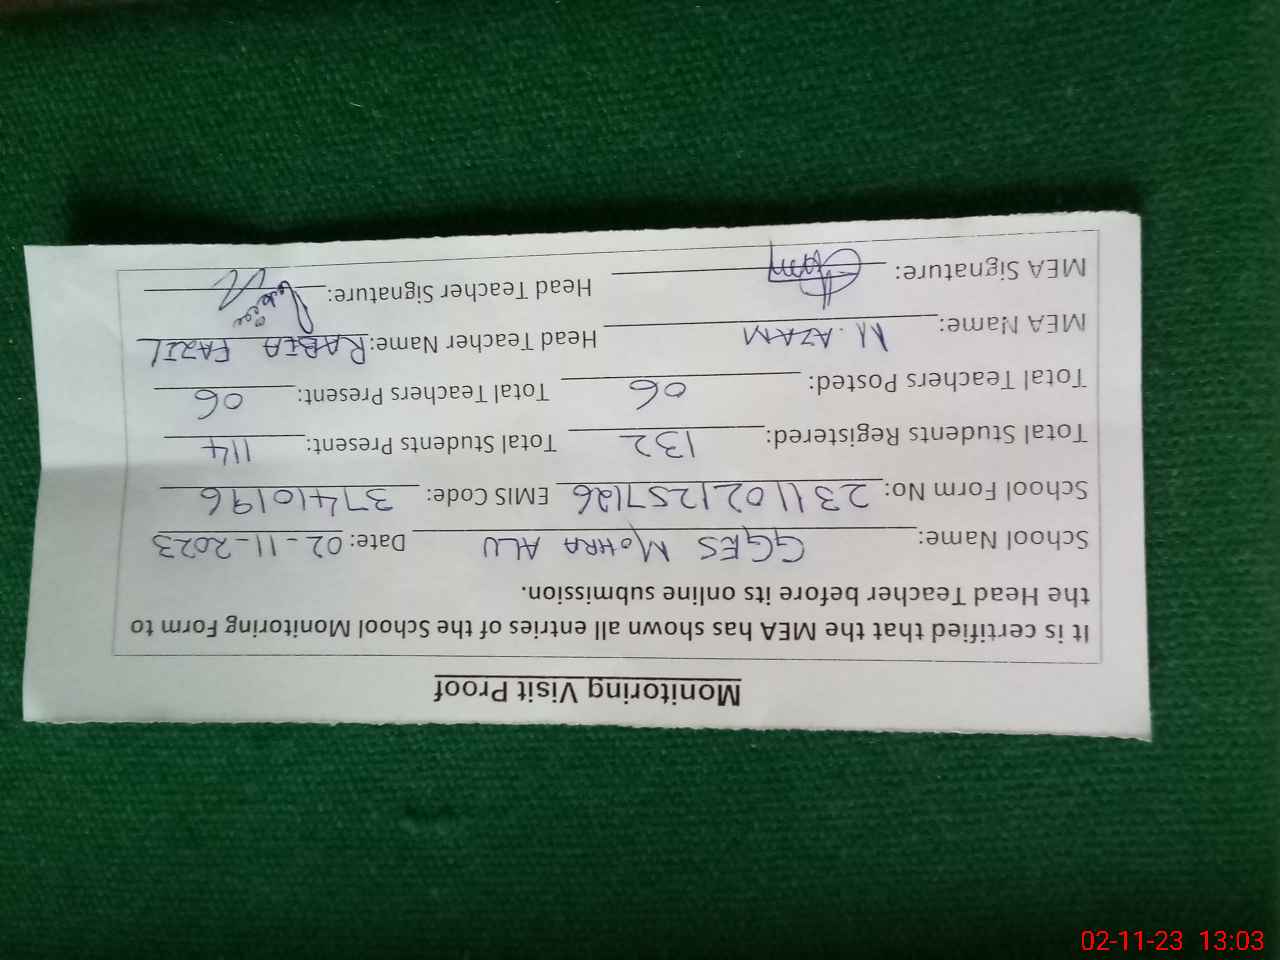 Monitoring Visit Proof
It is certified that the MEA has shown all entries of the School Monitoring Form to
the Head Teacher before its online submission.
School Name: GGES MOHRA ALU Date: 02-11-2023
School Form No: 2311021257126 EMIS Code: 37410196
Total Students Registered: 132 Total Students Present: 114
Total Teachers Posted: 06 Total Teachers Present: 06
MEA Name: M. AZAM Head Teacher Name: RABIA FAZIL
MEA Signature: Head Teacher Signature:
02-11-23 13:03